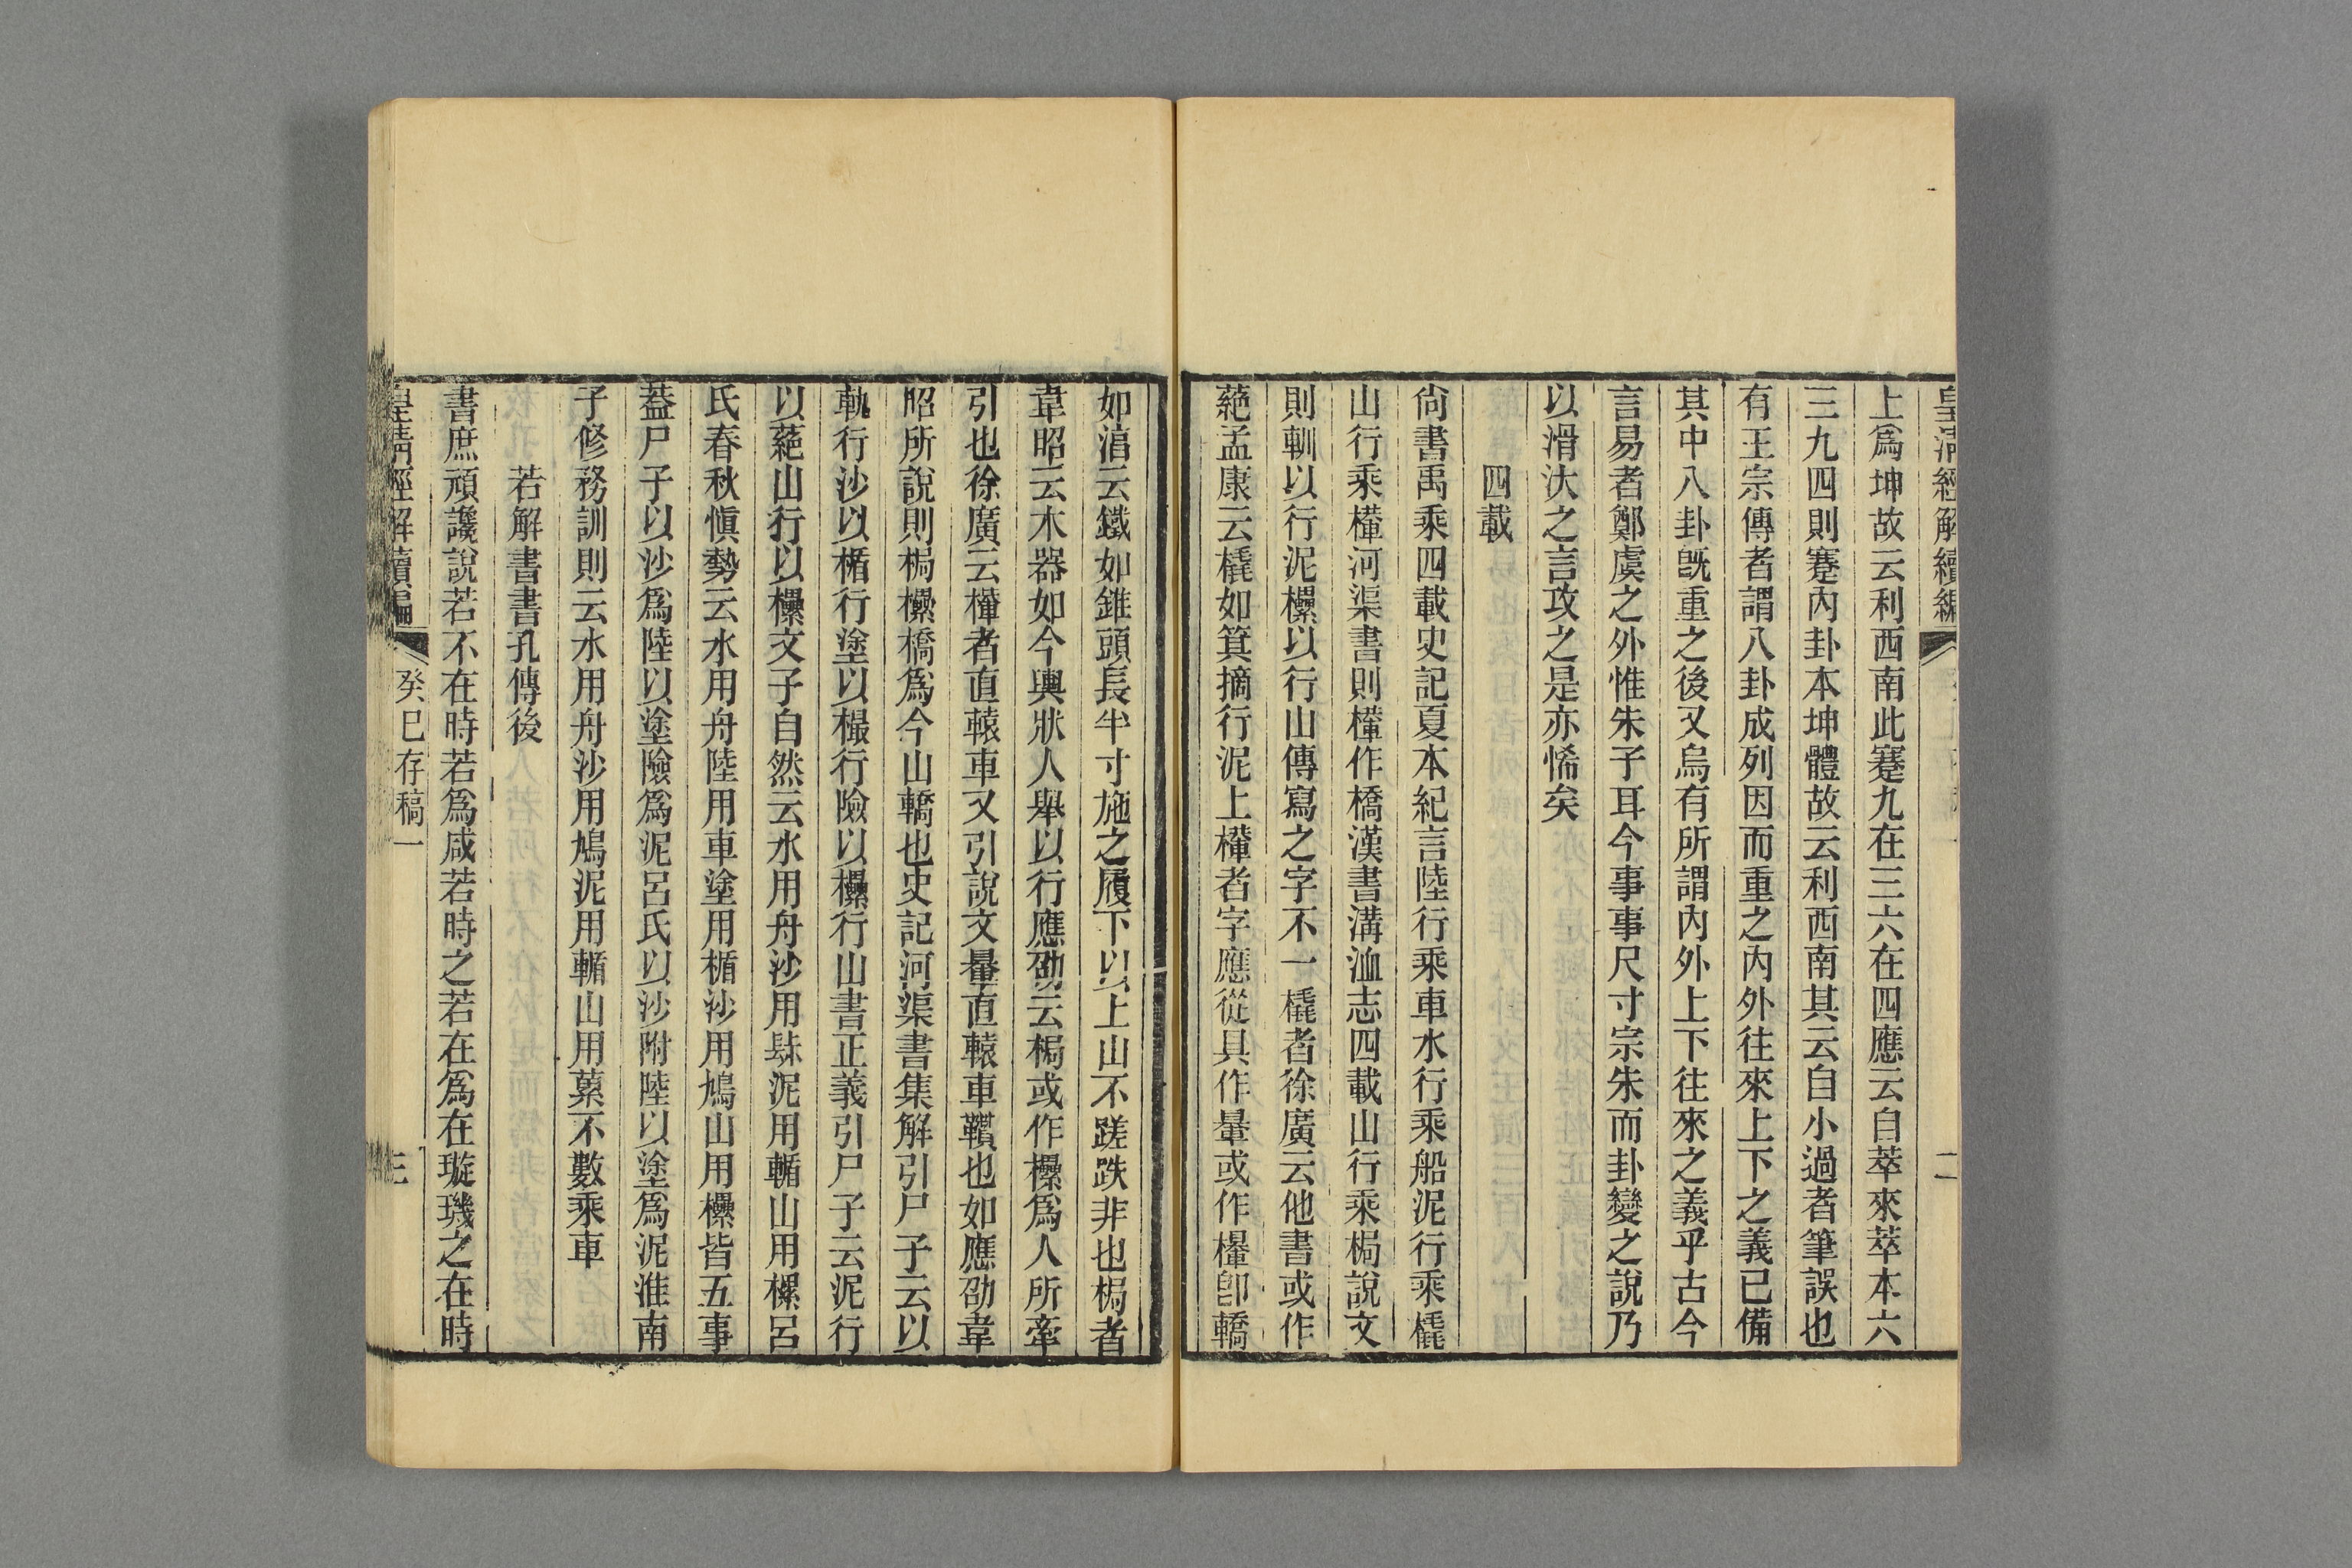 皇清經解續編
二
上爲坤故云利西南此蹇九在三六在四應云自萃來萃本六
三九四則蹇內卦本坤體故云利西南其云自小過者筆誤也
有王宗傳者謂八卦成列因而重之內外往來上下之義已備
其中八卦旣重之後又烏有所謂內外上下往來之義乎古今
言易者鄭虞之外惟朱子耳今事事尺寸宗朱而卦變之說乃
以滑汏之言攻之是亦悕矣
四載
尙書禹乘四載史記夏本紀言陸行乘車水行乘船泥行乘橇
山行乘檋河渠書則檋作橋漢書溝洫志四載山行乘梮說文
則軔以行泥欙以行山傳寫之字不一橇者徐廣云他書或作
蕝孟康云橇如箕摘行泥上檋者字應從具作暈或作檋卽轎
如湻云鐵如錐頭長半寸施之履下以上山不蹉跌非也梮者
韋昭云木器如今輿狀人舉以行應劭云梮或作欙爲人所牽
引也徐廣云檋者直轅車又引說文暈直轅車䡽也如應劭韋
昭所說則梮欙橋爲今山轎也史記河渠書集解引尸子云以
軌行沙以楯行塗以樶行險以欙行山書正義引尸子云泥行
以蕝山行以欙文子自然云水用舟沙用肆泥用輴山用樏呂
氏春秋愼勢云水用舟陸用車塗用楯沙用鳩山用欙皆五事
葢尸子以沙爲陸以塗險爲泥呂氏以沙附陸以塗爲泥淮南
子修務訓則云水用舟沙用鳩泥用輴山用蔂不數乘車
若解書書孔傳後
書庶頑讒說若不在時若爲咸若時之若在爲在璇璣之在時
皇清經解續編
癸巳存稿一
三